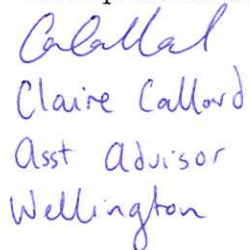 Claire Callard
Asst Advisor
Wellington